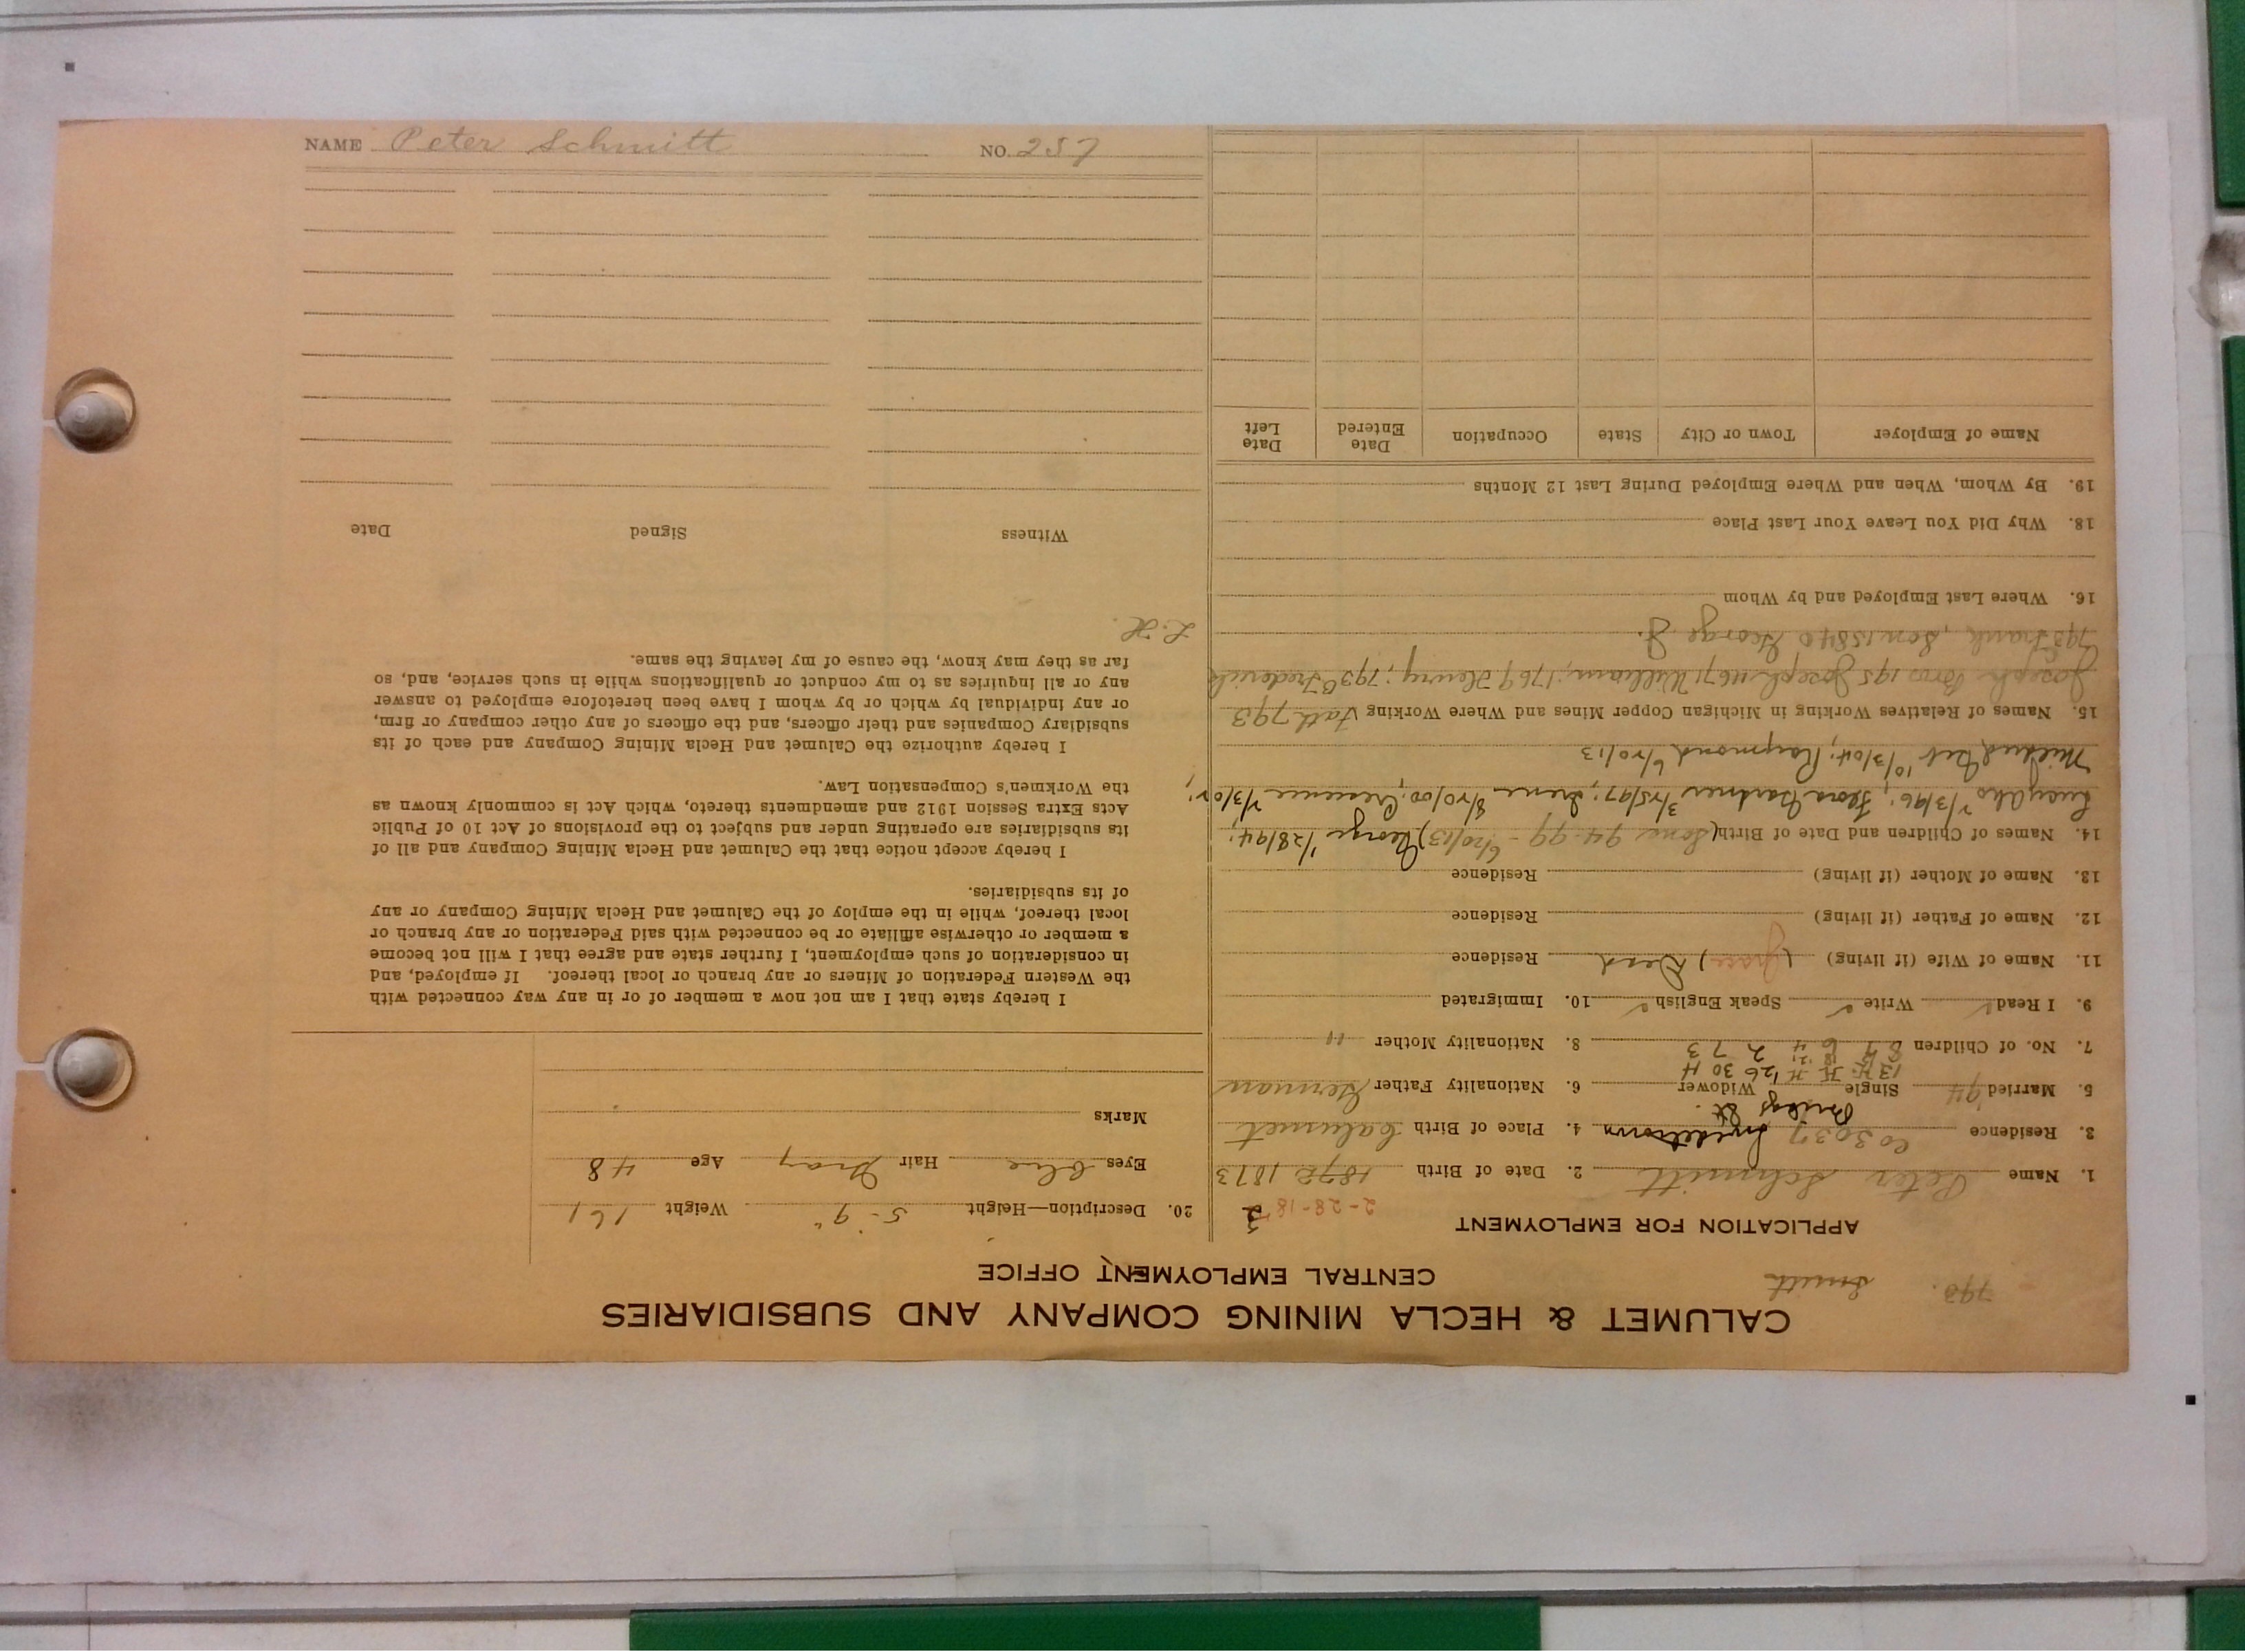 CALUMET & HECLA MINING COMPANY AND SUBSIDIARIES
CENTRAL EMPLOYMENT OFFICE
793. Smith
APPLICATION FOR EMPLOYMENT
2-28-18
1. Name Peter Schmitt 2. Date of Birth 1872 1873
3. Residence Co 3037 Swedetown 4. Place of Birth Calumet
Bridge St.
5. Married 94 Single Widower 6. Nationality Father German
7. No. of Children 8. Nationality Mother "
9. I Read ✓ Write ✓ Speak English ✓ 10. Immigrated
11. Name of Wife (if living) (Grace) Dead Residence
12. Name of Father (if living) Residence
13. Name of Mother (if living) Residence
14. Names of Children and Date of Birth (Sons 94-99 - 6/20/13) George 1/28/94;
Lucy Aho 2/3/96; Flora Gardner 3/25/97; Irene 8/20/00; Cresence 2/3/02;
Mildred Deb 10/3/04; Raymond 6/20/13
15. Names of Relatives Working in Michigan Copper Mines and Where Working Fath 793
Joseph Bros 195 Joseph 11671 William; 1769 Henry; 793 C Frederick
793 E Frank, Son 15840 George J.
16. Where Last Employed and by Whom
18. Why Did You Leave Your Last Place
19. By Whom, When and Where Employed During Last 12 Months
Name of Employer Town or City State Occupation Date Entered Date Left
20. Description—Height 5-9" Weight 161
Eyes Blue Hair Gray Age 48
Marks
I hereby state that I am not now a member of or in any way connected with
the Western Federation of Miners or any branch or local thereof. If employed, and
in consideration of such employment, I further state and agree that I will not become
a member or otherwise affiliate or be connected with said Federation or any branch or
local thereof, while in the employ of the Calumet and Hecla Mining Company or any
of its subsidiaries.
I hereby accept notice that the Calumet and Hecla Mining Company and all of
its subsidiaries are operating under and subject to the provisions of Act 10 of Public
Acts Extra Session 1912 and amendments thereto, which Act is commonly known as
the Workmen's Compensation Law.
I hereby authorize the Calumet and Hecla Mining Company and each of its
subsidiary Companies and their officers, and the officers of any other company or firm,
or any individual by which or by whom I have been heretofore employed to answer
any or all inquiries as to my conduct or qualifications while in such service, and, so
far as they may know, the cause of my leaving the same.
L.H.
Witness Signed Date
NAME Peter Schmitt NO. 257